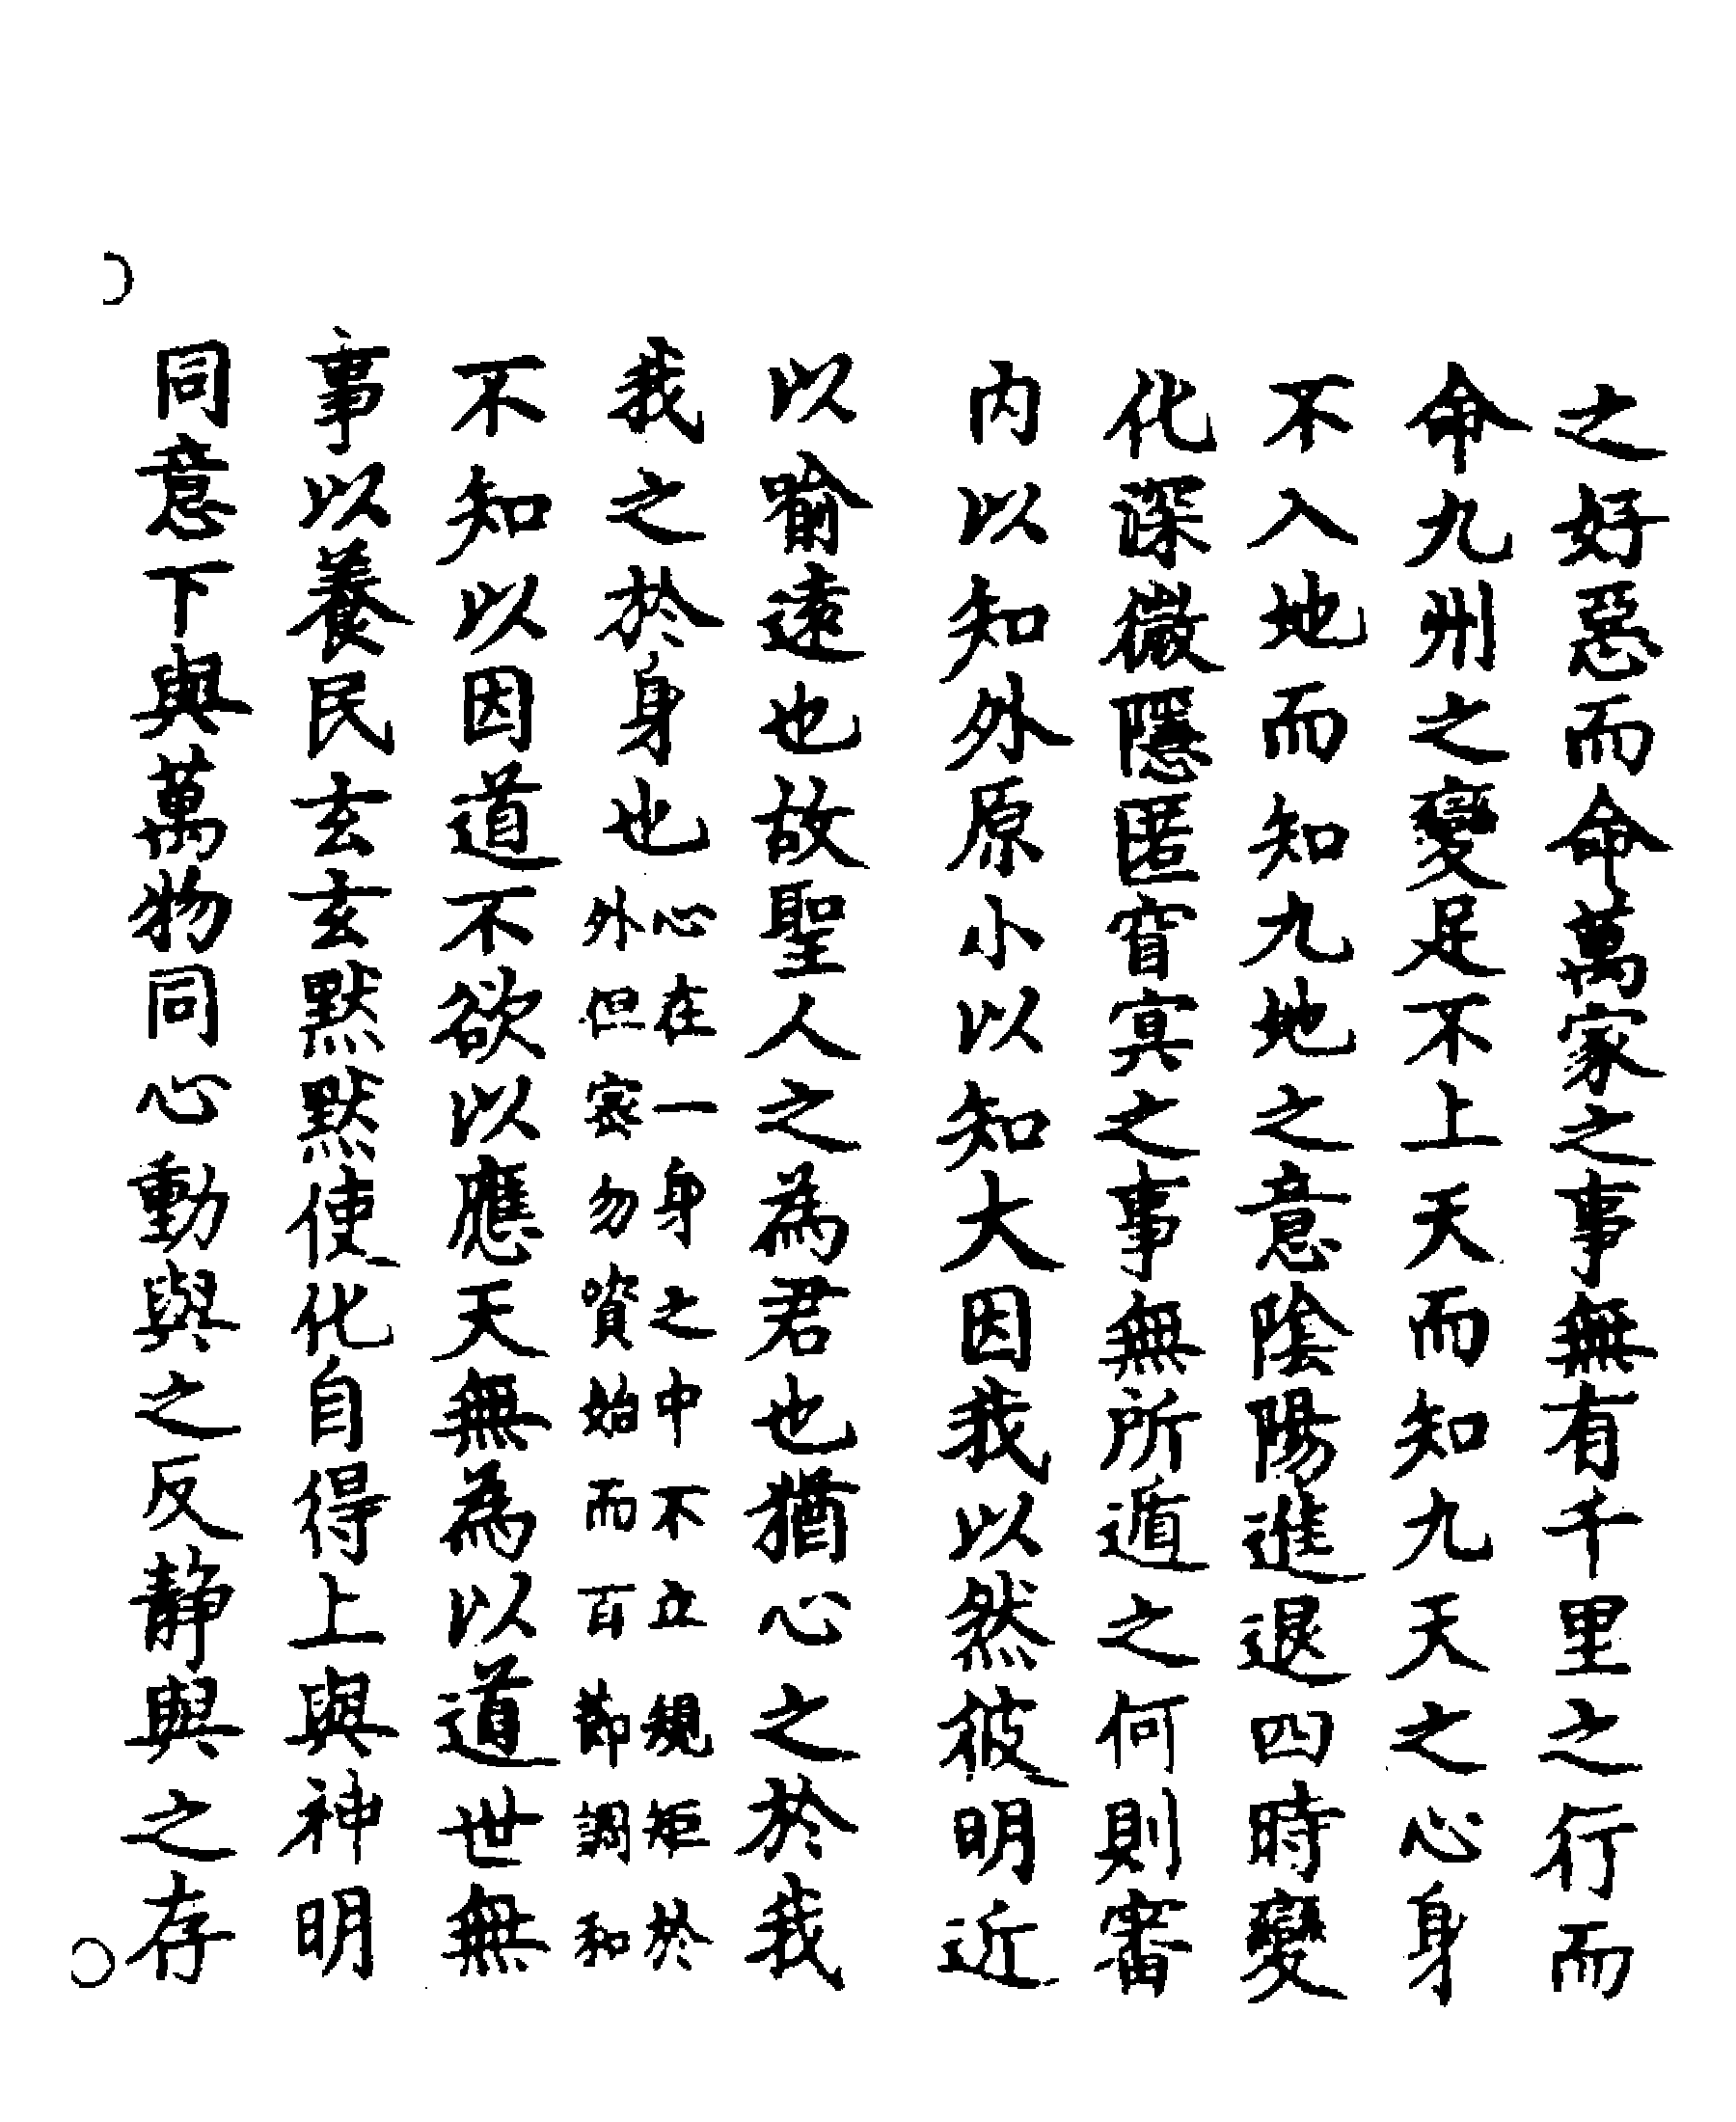 之好惡而命萬家之事無有千里之行而
命九州之變足不上天而知九天之心身
不入地而知九地之意陰陽進退四時變
化深微隱匿窅冥之事無所遁之何則審
内以知外原小以知大因我以然彼明近
以喻遠也故聖人之為君也猶心之於我
我之於身也
心在一身之中不立規矩於
外但密勿資始而百節調和
不知以因道不欲以應天無為以道世無
事以養民玄玄默默使化自得上與神明
同意下與萬物同心動與之反静與之存